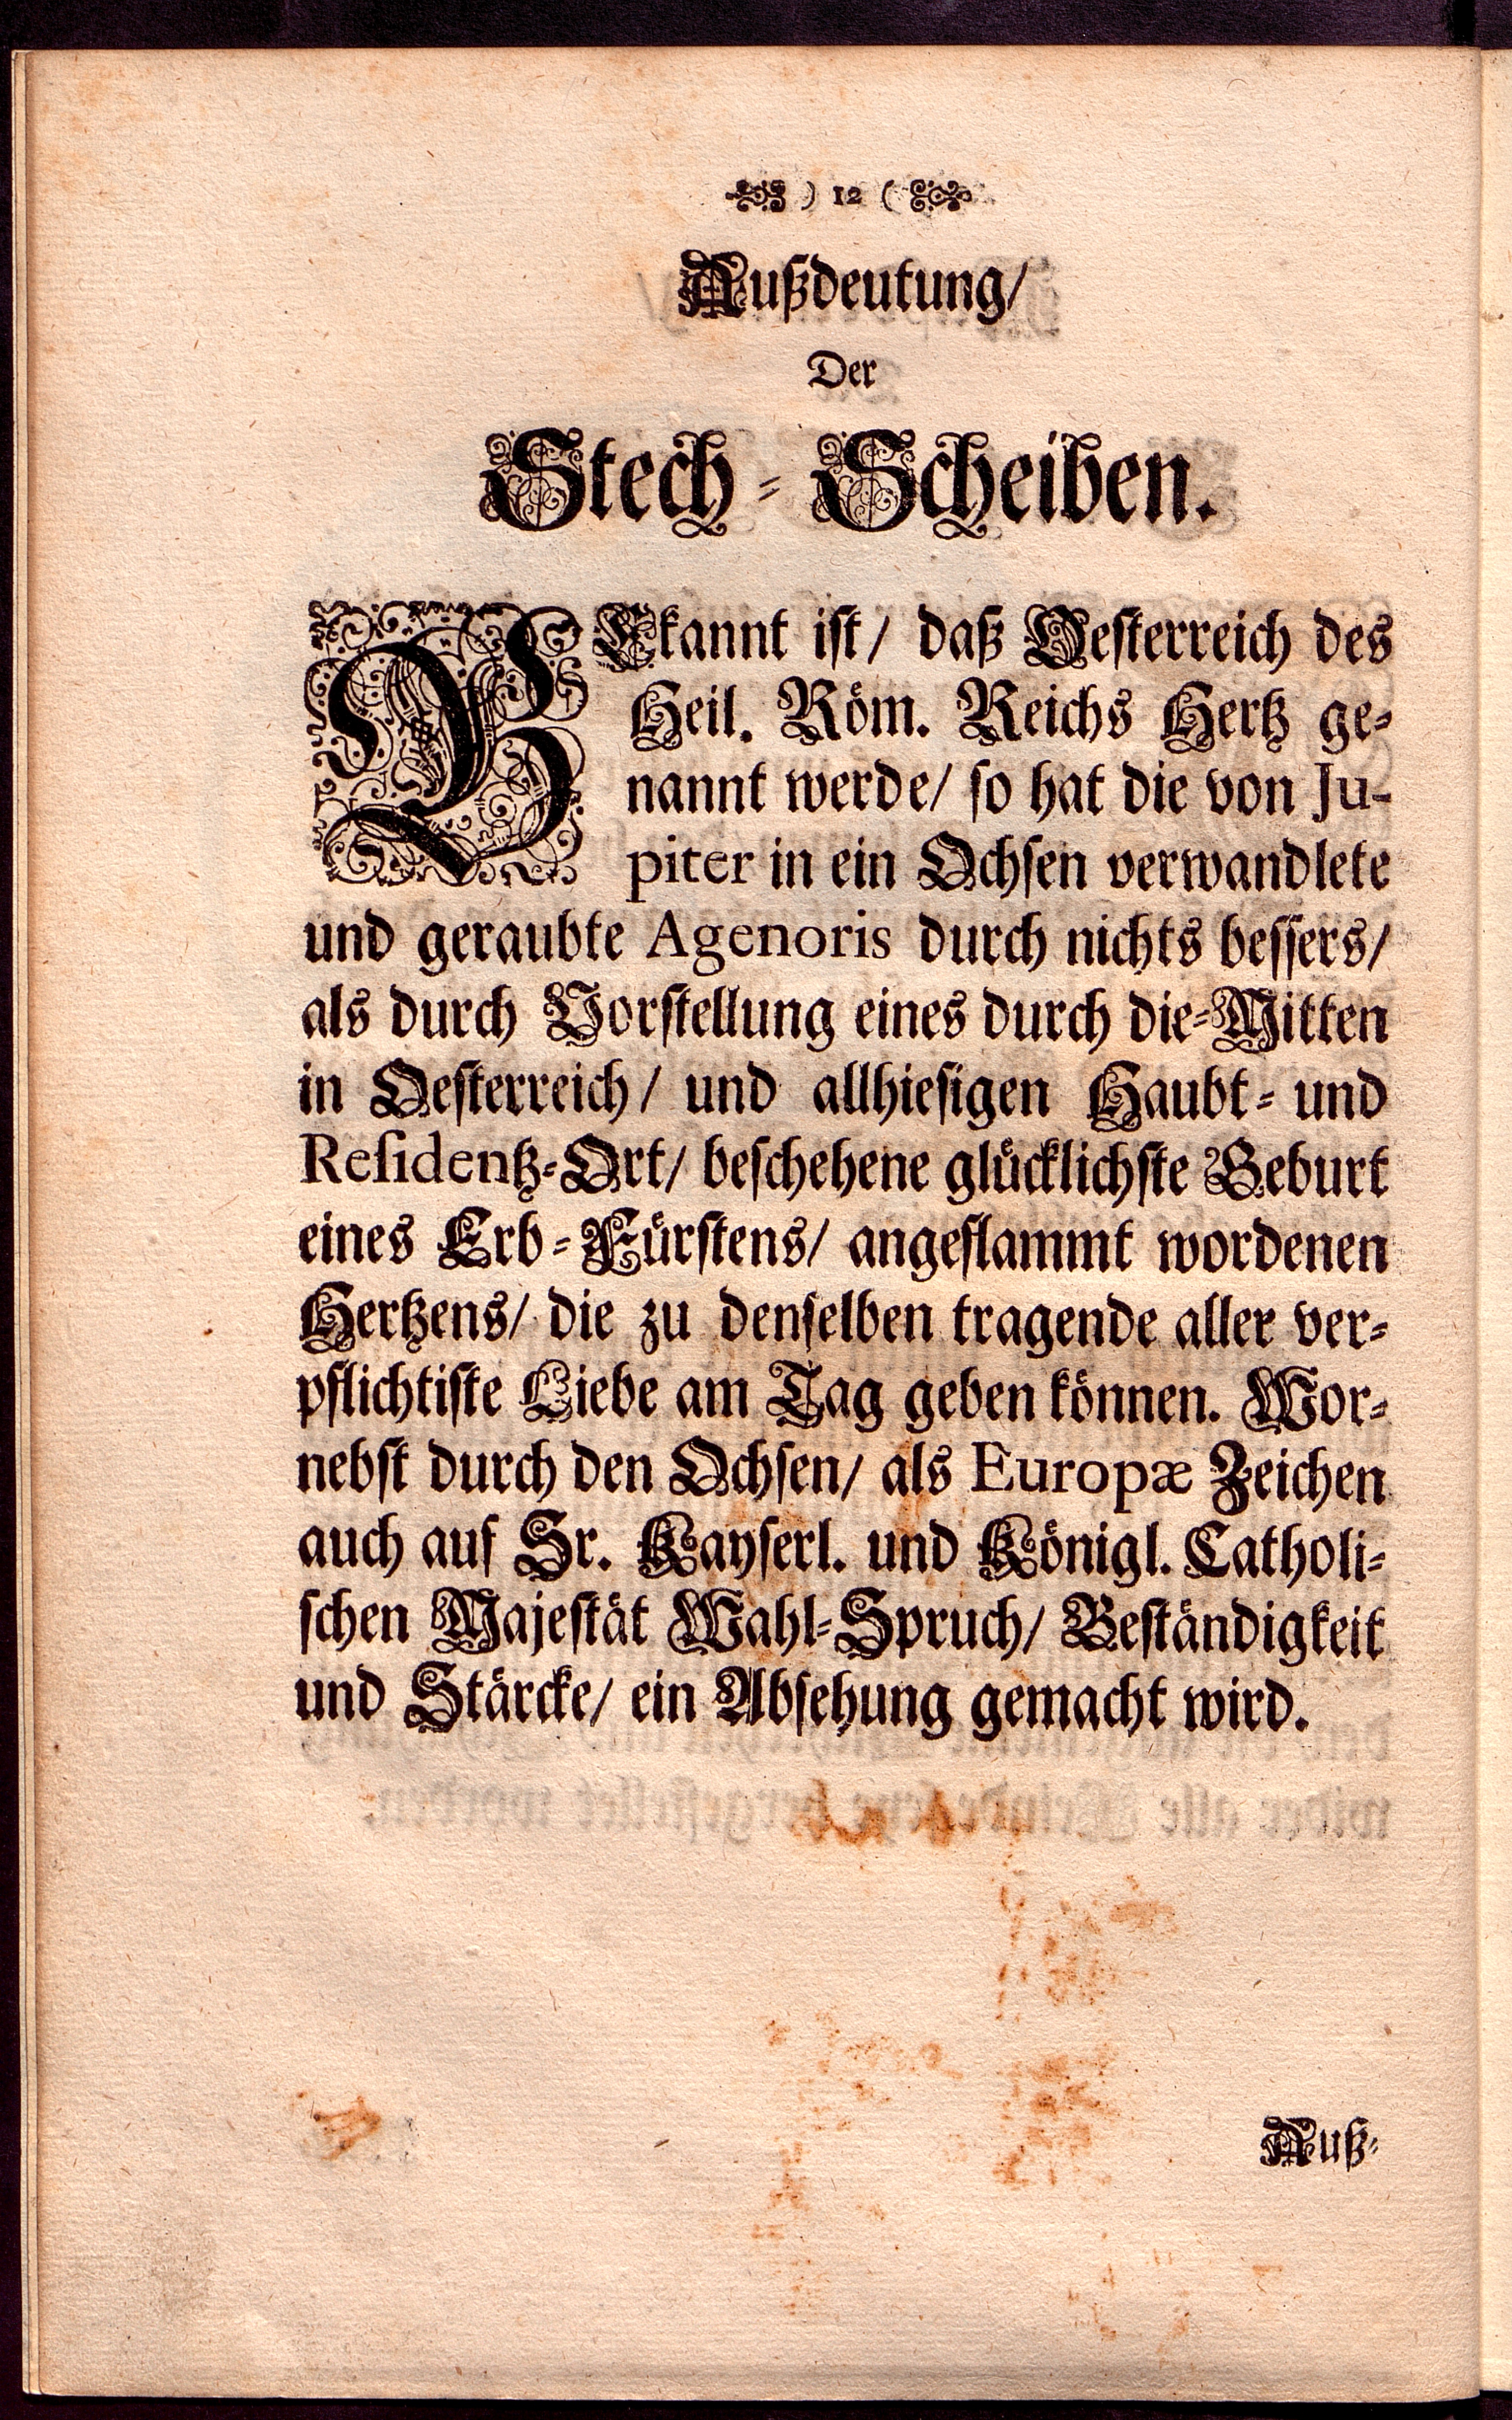 ) 12 (
Außdeutung/
Der
Stech-Scheiben.
BEkannt ist/ daß Oesterreich des
Heil. Röm. Reichs Hertz ge-
nannt werde/ so hat die von Ju-
piter in ein Ochsen verwandlete
und geraubte Agenoris durch nichts bessers/
als durch Vorstellung eines durch die-Mitten
in Oesterreich/ und allhiesigen Haubt- und
Residentz-Ort/ beschehene glücklichste Geburt
eines Erb-Fürstens/ angeflammt wordenen
Hertzens/ die zu denselben tragende aller ver-
pflichtiste Liebe am Tag geben können. Wor-
nebst durch den Ochsen/ als Europæ Zeichen
auch auf Sr. Kayserl. und Königl. Catholi-
schen Majestät Wahl-Spruch/ Beständigkeit
und Stärcke/ ein Absehung gemacht wird.
Auß-